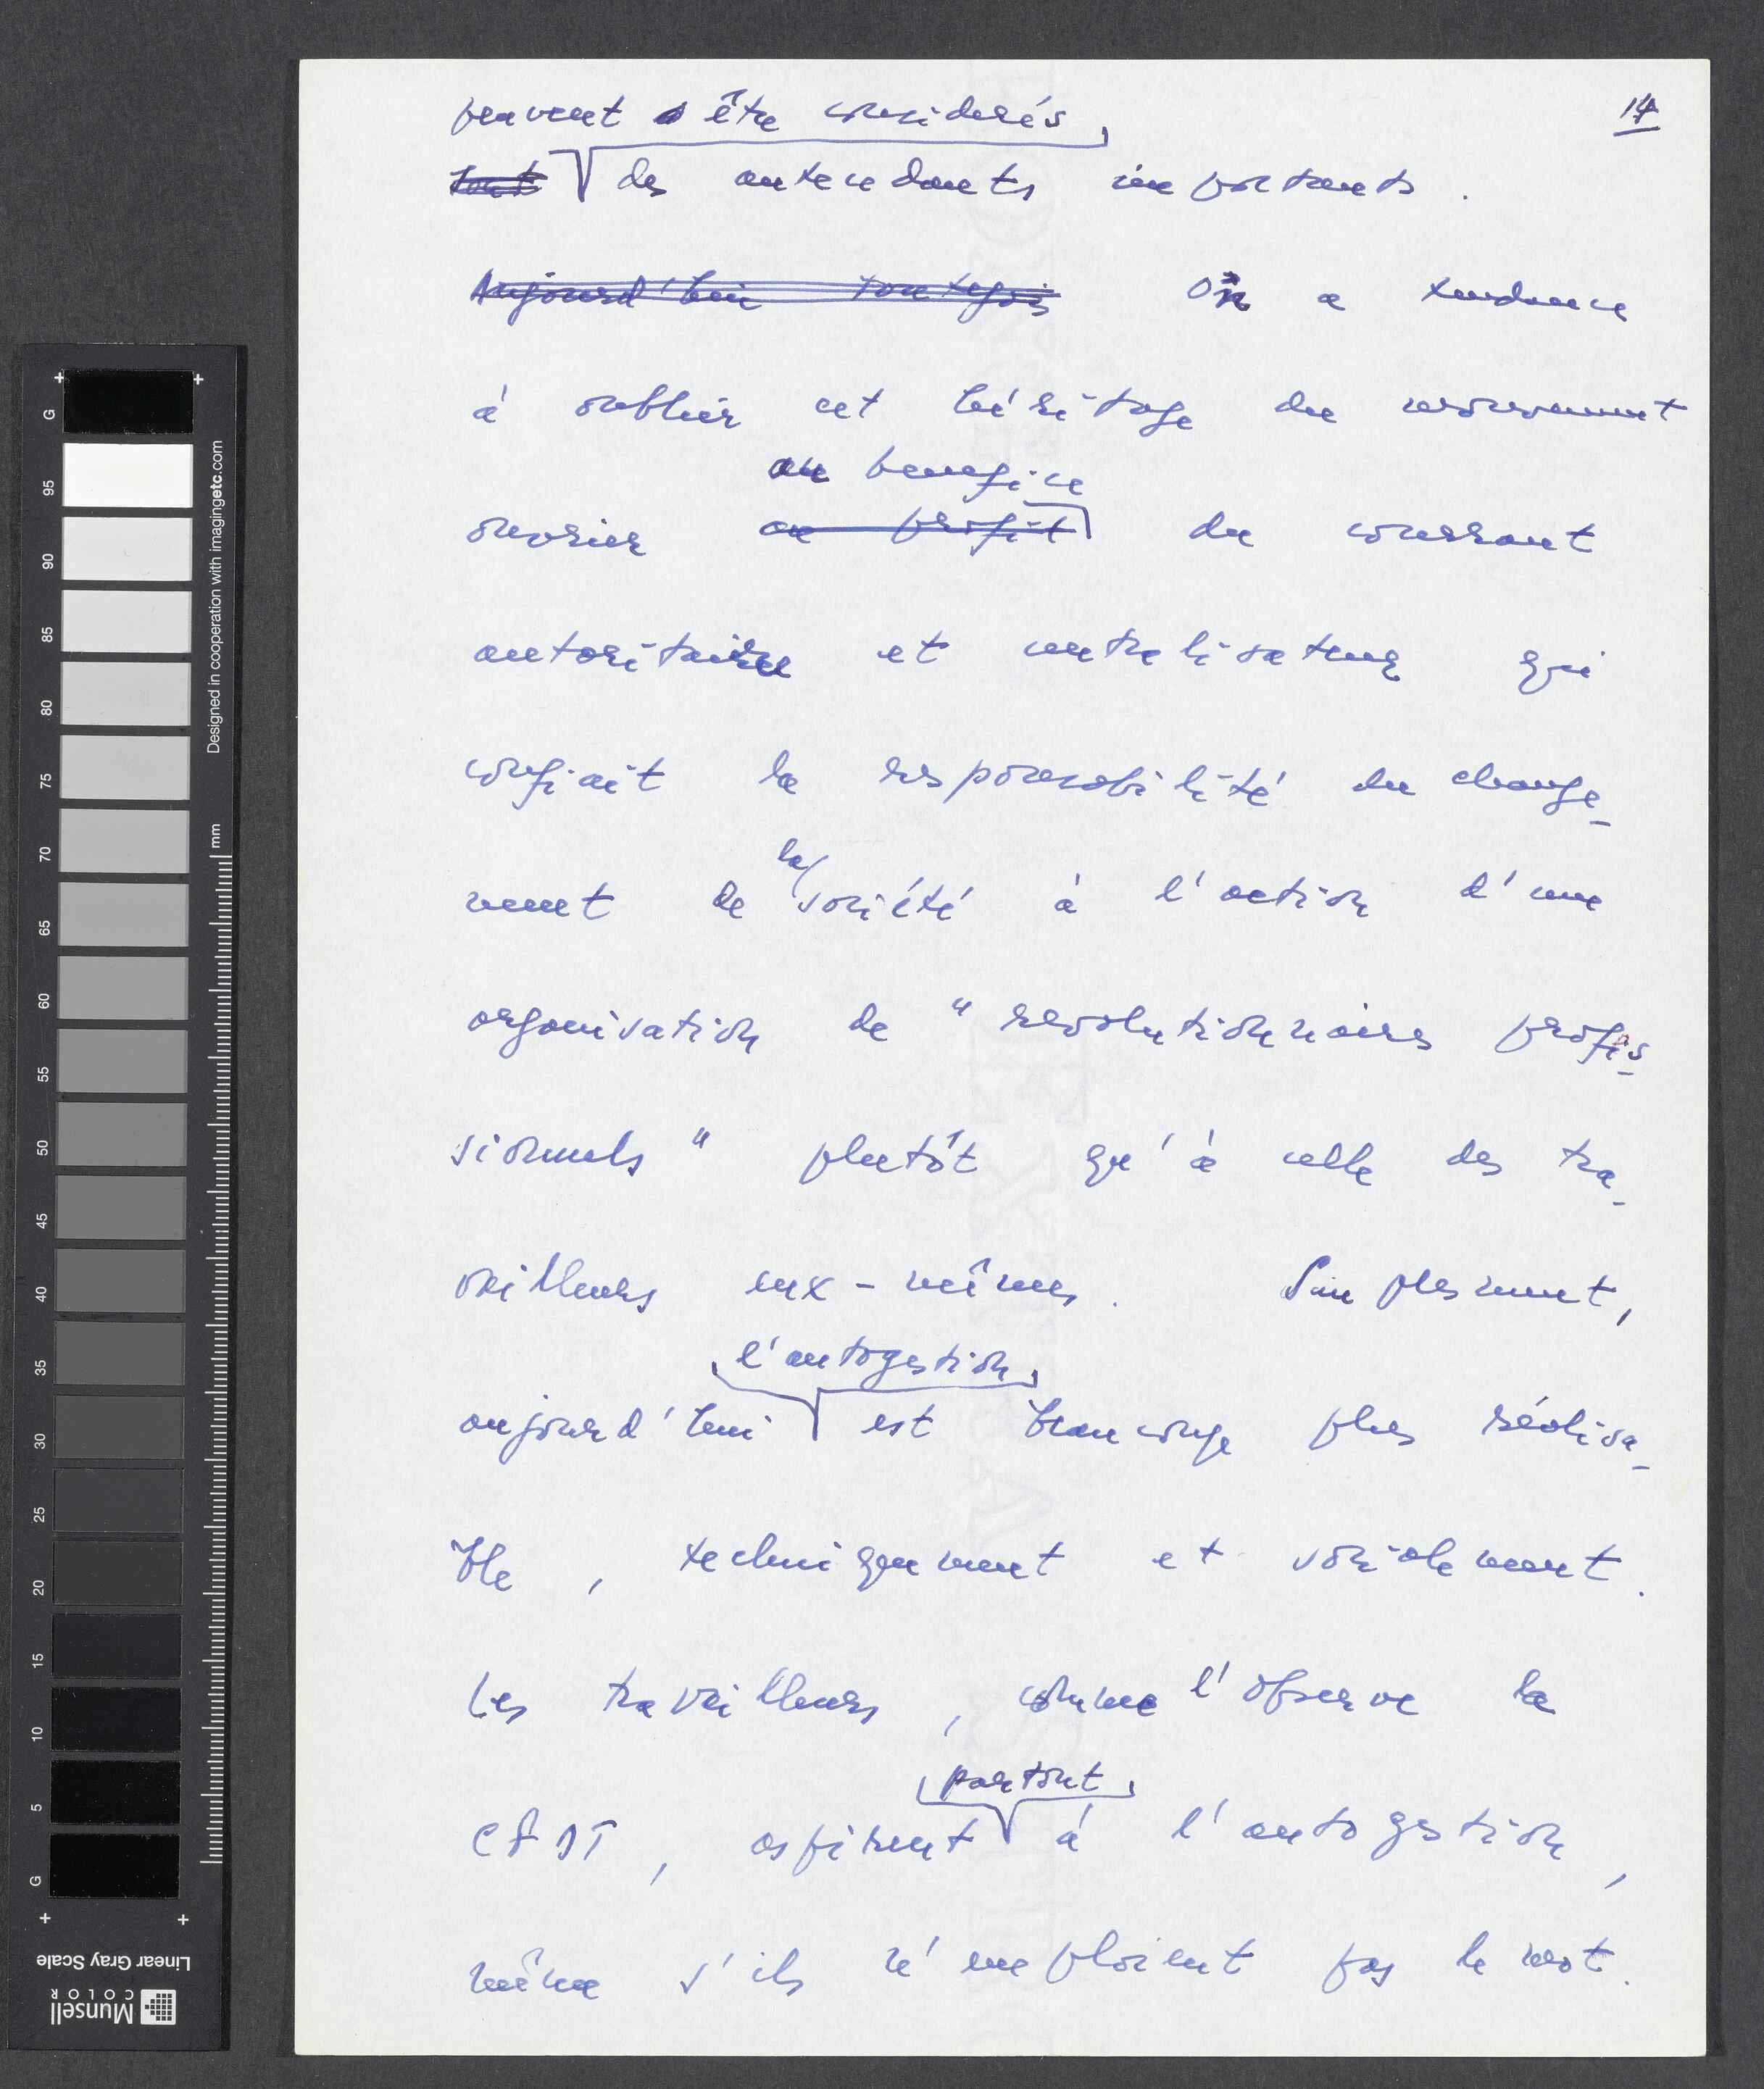 14
peuvent être considérés
sont des antécédants importants.
Aujourd'hui toutefois On a tendance
à oublier cet héritage du mouvement
au bénéfice
ouvrier au profit du courrant
autoritaire et centralisateur qui
confiait la responsabilité du change-
la
ment de société à l'action d'une
organisation de " révolutionnaires profes-
sionnels " plutôt qu'à celle des tra-
vailleurs eux-mêmes. Simplement,
l'autogestion
aujourd'hui est beaucoup plus réalisa-
ble, techniquement et socialement.
Les travailleurs, comme l'observe la
partout
CFDT, aspirent à l'autogestion,
même s'ils n'emploient pas le mot.
G
95
90
85
80
75
70
65
60
55
50
45
40
35
30
25
20
15
10
5
G
mm
Designed in cooperation with imagingetc.com
Linear Gray Scale
Munsell
COLOR